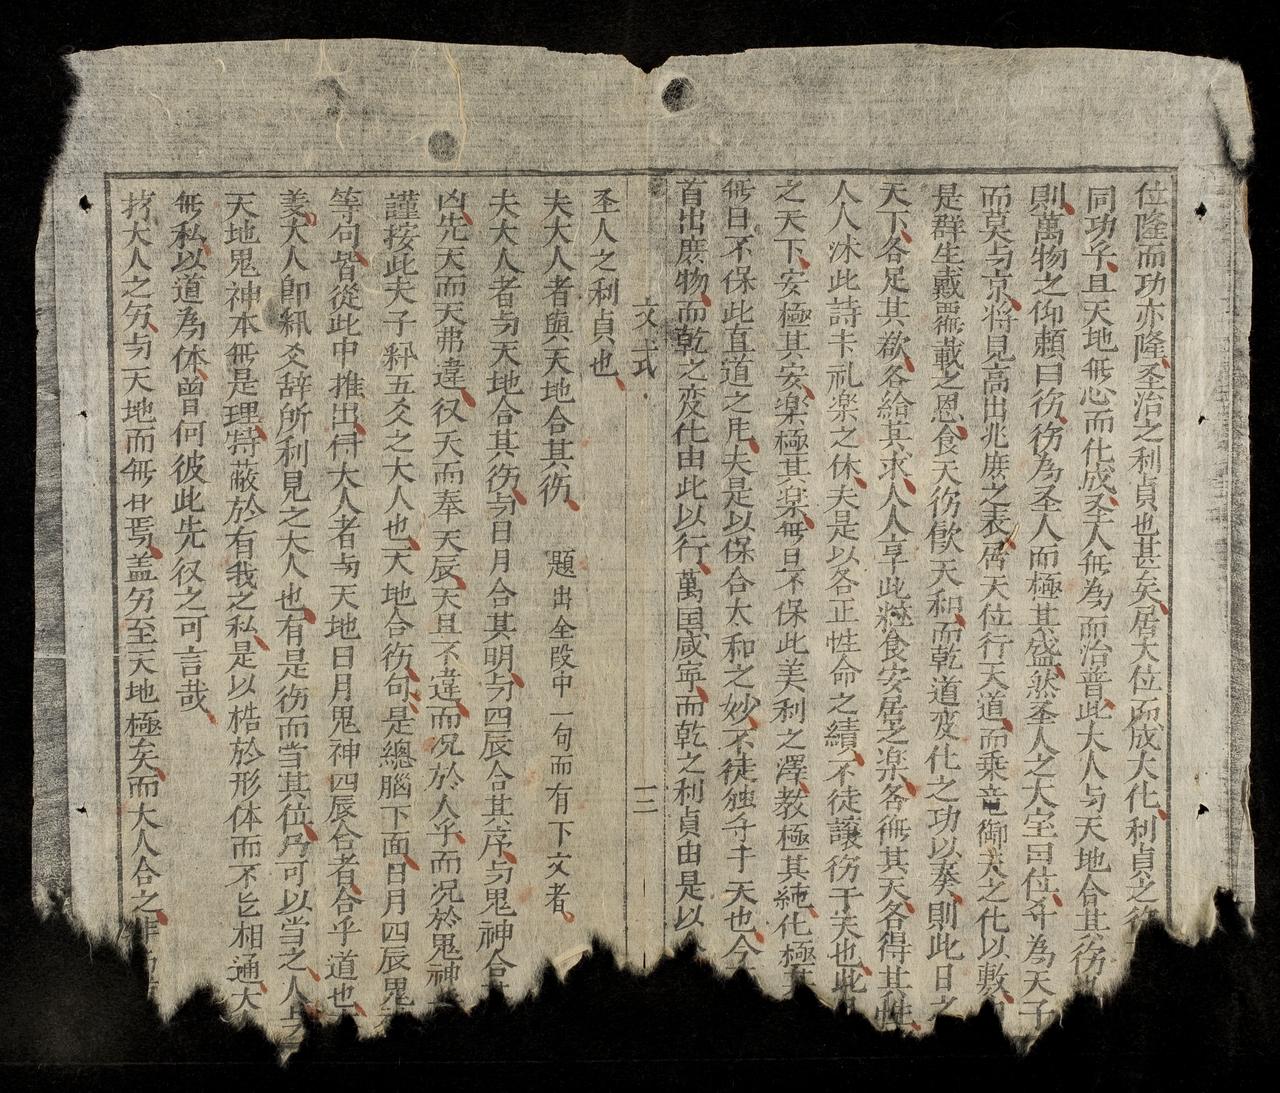 位隆而功亦隆圣治之利貞也甚矣居大位而成大化利貞之
同功乎且天地無心而化成圣人無為而治普此大人与天地合其㣲
則萬物之仰頼曰㣲㣲為圣人而極其盛然圣人之大宝曰位今為天子
而莫与京将見高出兆庶之表居天位行天道而乗竜御天之化以敷
是群生戴覆載之恩食天㣲飲天和而乾道変化之功以奏則此日之
天下各足其欲各給其求人人享此粒食安居之楽各無其天各得其性
人人沐此詩书礼楽之休夫是以各正性命之績不徒讓㣲于天也此
之天下安極其安楽極其楽無日不保此美利之澤教極其純化極
無日不保此直道之民夫是以保合太和之妙不徒独于于天也今
首出庶物而乾之変化由此以行萬国咸寧而乾之利貞由是以
圣人之利貞也
文式 二
夫大人者與天地合其㣲 題出全段中一句而有下文者
夫大人者与天地合其㣲与日月合其明与四辰合其序与鬼神合
凶先天而天弗違后天而奉天辰天且不違而况於人乎而况於鬼神
謹按此夫子釋五爻之大人也天地合㣲句是總腦下面日月四辰鬼
等句皆從此中推出何大人者与天地日月鬼神四辰合者合乎道也
姜大人即釋爻辞所利見之大人也有是㣲而当其位乃可以当之人与
天地鬼神本無是理特蔽於有我之私是以梏於形体而不能相通大
無私以道為体曽何彼此先后之可言哉
按大人之分与天地而無廿焉盖分至天地極矣而大人合之